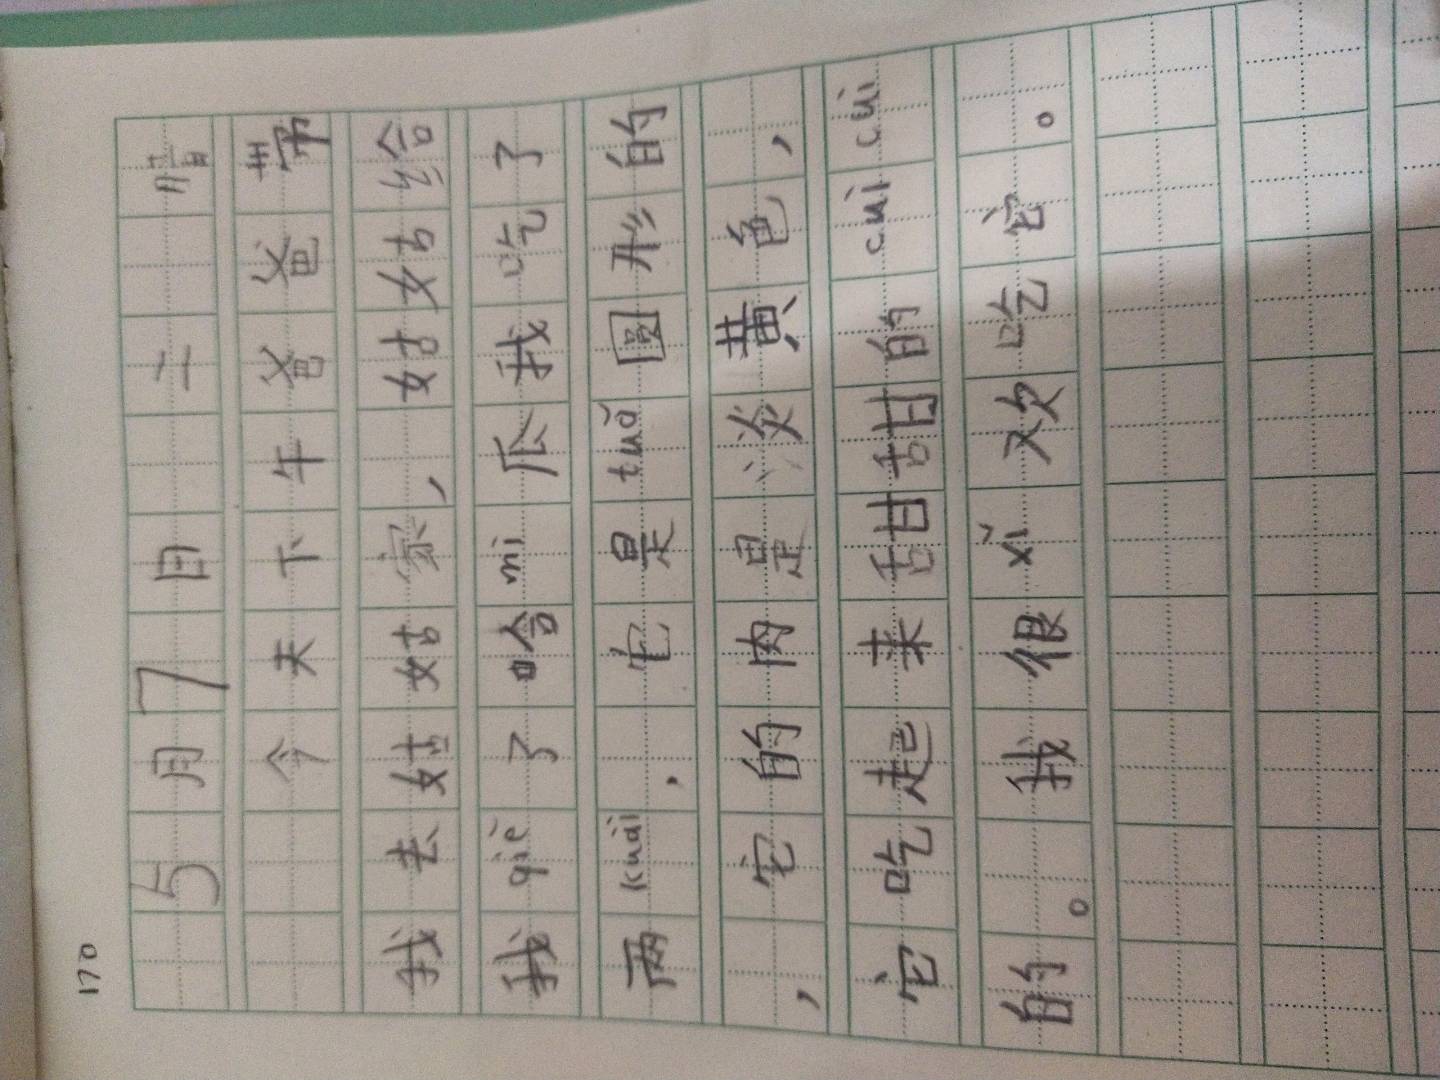 170
5月7日 二 晴
今天下午爸爸带
我去姑姑家，姑姑给
我qiè了哈mì瓜我吃了
两kuài，它是tuǒ圆形的
，它的肉是淡黄色，
它吃起来甜甜的cuì cuì
的。我很xǐ欢吃它。